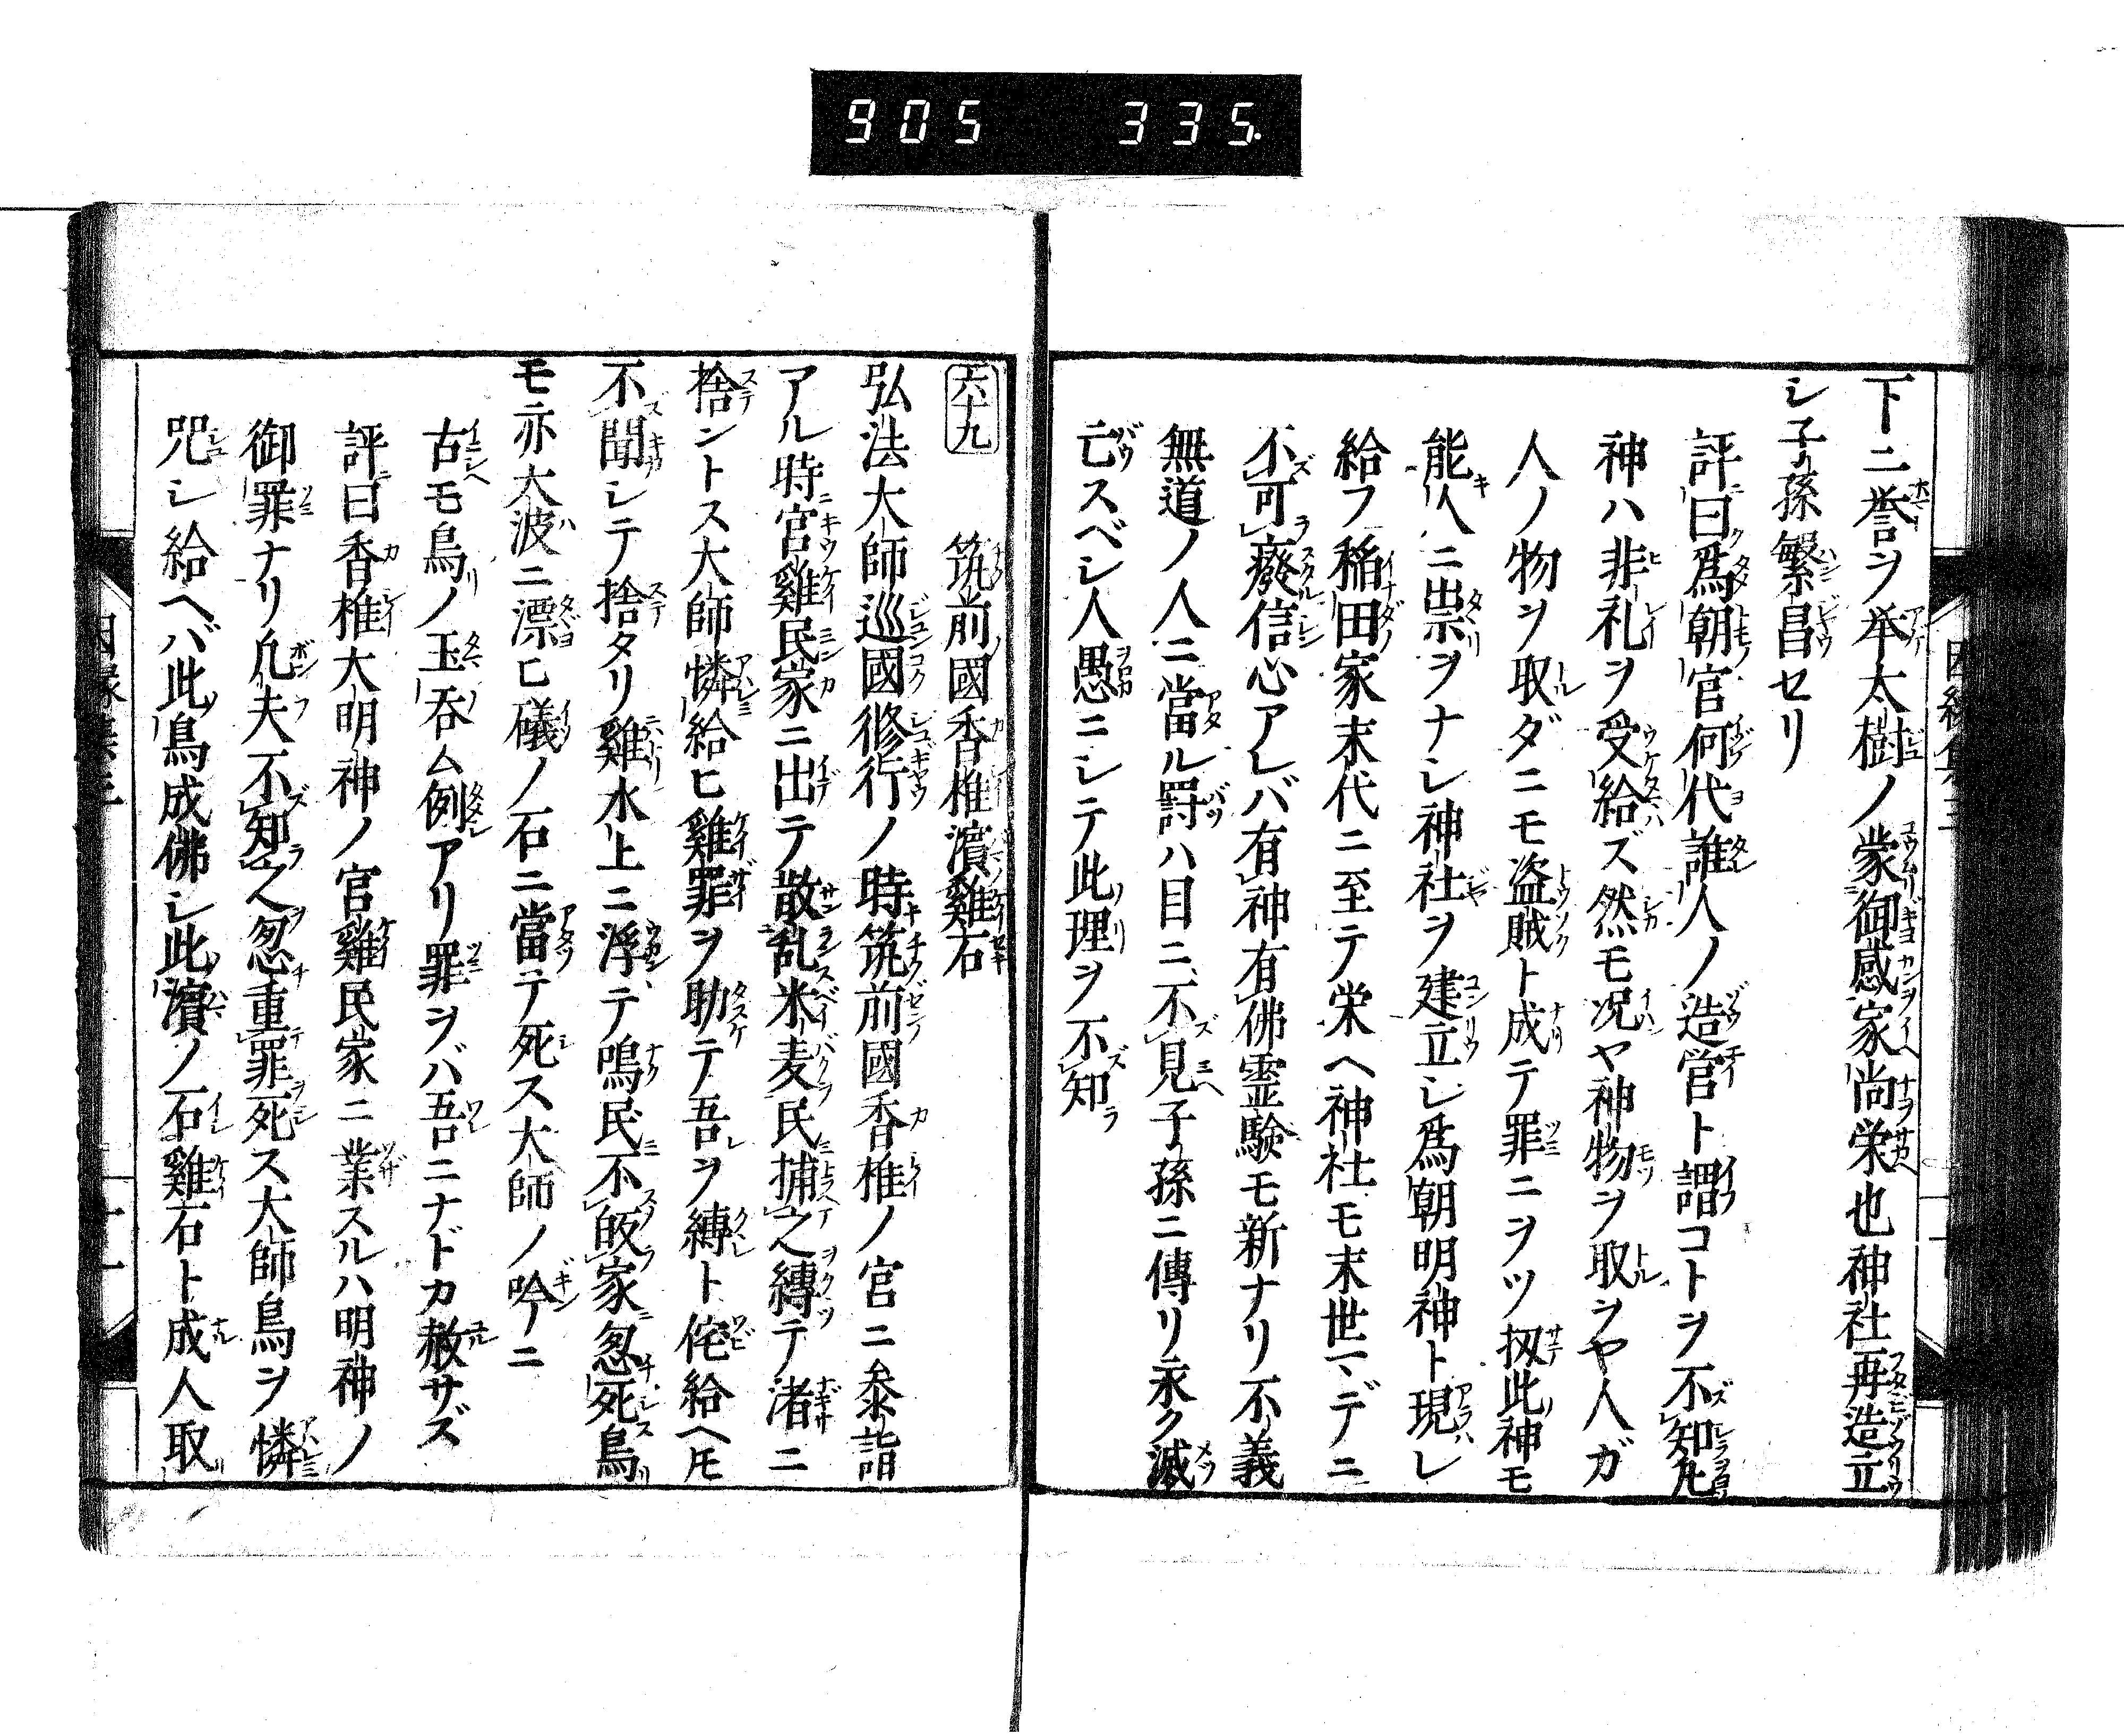 905 335.
下ニ誉ヲ挙太樹ノ蒙御感家尚栄也神社再造立
シ子孫繁昌セリ
評曰爲朝官何代誰人ノ造営ト謂コトヲ不知凡
神ハ非礼ヲ受給ズ然モ況ヤ神物ヲ取ヲヤ人ガ
人ノ物ヲ取ダニモ盗賊ト成テ罪ニヲツ扨此神モ
能人ニ祟ヲナシ神社ヲ建立シ爲朝明神ト現レ
給フ稲田家末代ニ至テ栄ヘ神社モ末世マデニ
不可廢信心アレバ有神有佛霊験モ新ナリ不義
無道ノ人ニ當ル罸ハ目ニ不見子孫ニ傳リ永ク滅
亡スベシ人愚ニシテ此理ヲ不知
六十九
筑前國香椎濱雞石
弘法大師巡國修行ノ時筑前國香椎ノ宮ニ叅詣
アル時宮雞民家ニ出テ散乱米麦民捕之縛テ渚ニ
捨ントス大師憐給ヒ雞罪ヲ助テ吾ヲ縛ト侘給ヘ𪜈
不聞シテ捨タリ雞水上ニ浮テ鳴民不皈家忽死鳥
モ亦大波ニ漂ヒ礒ノ石ニ當テ死ス大師ノ吟ニ
古モ鳥ノ玉吞ム例アリ罪ヲバ吾ニナドカ赦サズ
評曰香椎大明神ノ宮雞民家ニ業スルハ明神ノ
御罪ナリ凡夫不知之忽重罪死ス大師鳥ヲ憐
咒シ給ヘバ此鳥成佛シ此濱ノ石雞石ト成人取